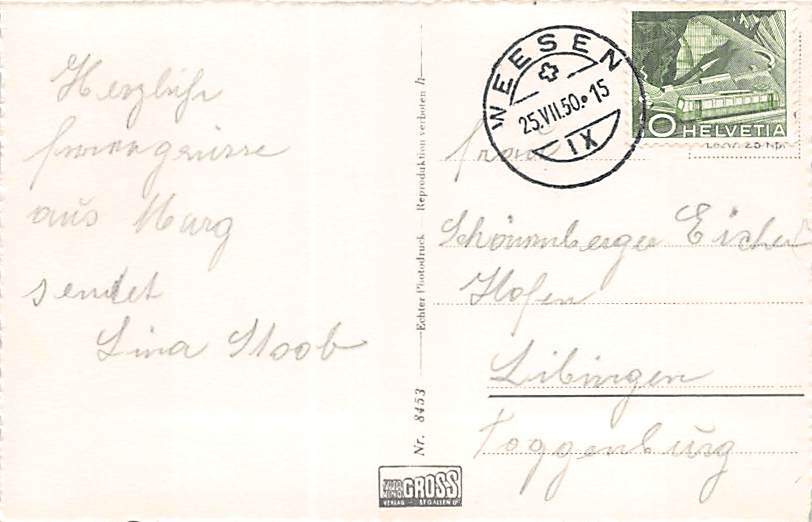 Herzliche
feriengrüsse
aus Murg
sendet
Lina Stoob
Nr. 8453
Echter Photodruck
Reproduktion verboten
GROSS
VERLAG ST. GALLEN
WEESEN
25.VII.50.15
IX
HELVETIA
frau
Schönenberger Eicher
Hofen
Libingen
Toggenburg